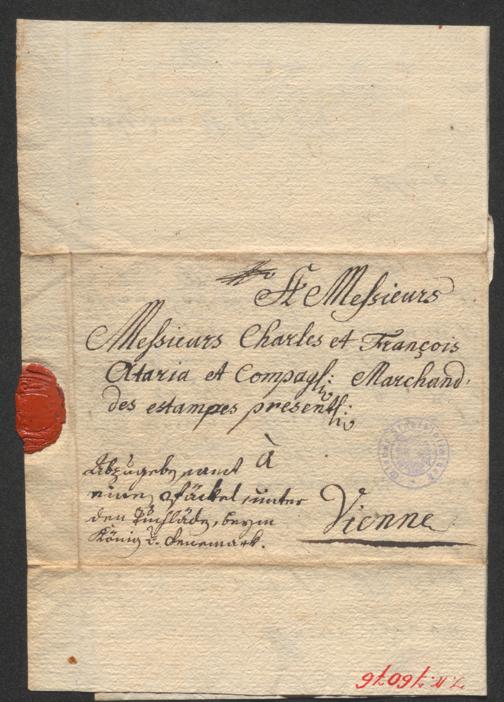 A Messieurs
Messieurs Charles et François
Ataria et Compagʃ: Marchand
des estampes present:
à
Vienne
Abzugeben samt
einem Päckel, unter
den Tuchläden, beym
König v. Denemark.
I.N. 76076